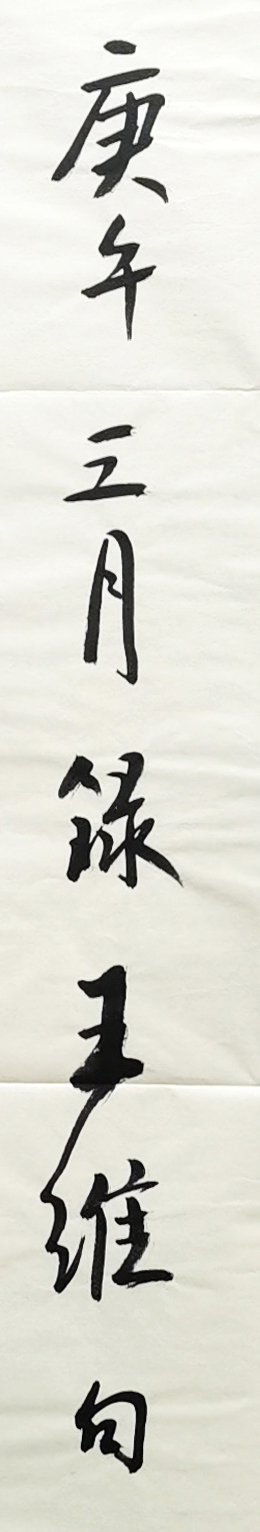 庚午三月録王維句